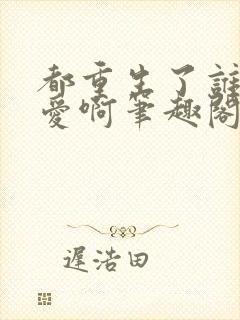 都重生了誰
愛啊筆趣閣
遲浩田